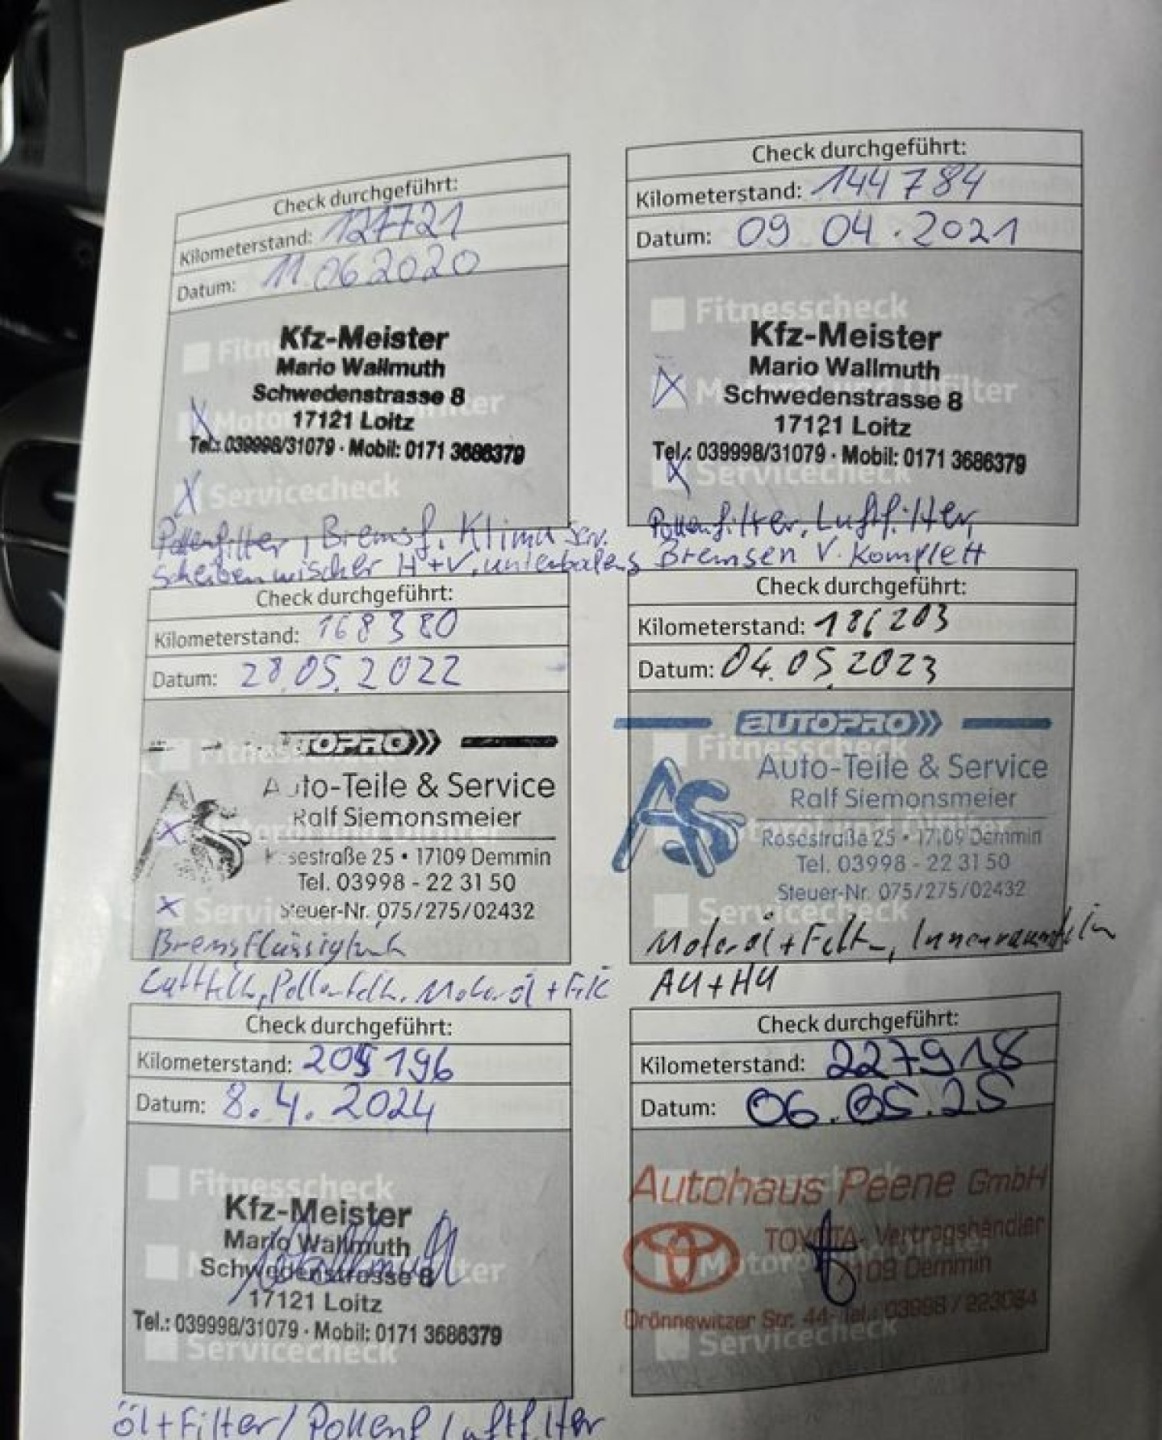 Check durchgeführt:
Kilometerstand: 127721
Datum: 11.06.2020
Fitn
Kfz-Meister
Mario Wallmuth
Schwedenstrasse 8
17121 Loitz
Tel.: 039998/31079 · Mobil: 0171 3686379
X Servicecheck
Pollenfilter, Bremsf. Klima Serv.
Scheibenwischer H+V.
Check durchgeführt:
Kilometerstand: 144784
Datum: 09 04.2021
Fitnesscheck
Kfz-Meister
Mario Wallmuth
Schwedenstrasse 8
17121 Loitz
Tel.: 039998/31079 · Mobil: 0171 3686379
Servicecheck
Pollenfilter, Luftfilter,
Bremsen V. Komplett
Check durchgeführt:
Kilometerstand: 168380
Datum: 28.05.2022
TOPRO
Auto-Teile & Service
AS
Ralf Siemonsmeier
sestraße 25 • 17109 Demmin
Tel. 03998 - 22 31 50
X Steuer-Nr. 075/275/02432
Bremsflüssigkeit
Motoröl + Filt
Check durchgeführt:
Kilometerstand: 186203
Datum: 04.05.2023
AUTOPRO
Fitnesscheck
Auto-Teile & Service
AS
Ralf Siemonsmeier
Rosestraße 25 • 17109 Demmin
Tel. 03998 - 22 31 50
Steuer-Nr. 075/275/02432
Servicecheck
Motoröl + Filt
AU+HU
Check durchgeführt:
Kilometerstand: 205196
Datum: 8.4.2024
Fitnesscheck
Kfz-Meister
Mario Wallmuth
Schwedenstrasse 8
17121 Loitz
Tel.: 039998/31079 · Mobil: 0171 3686379
Servicecheck
Öl+Filter/Pollenf Luftfilter
Check durchgeführt:
Kilometerstand: 227918
Datum: 06.05.25
Autohaus Peene GmbH
TOYOTA-Vertragshändler
17109 Demmin
Drönnewitzer Str. 44- Tel.: 03998 / 223084
Servicecheck